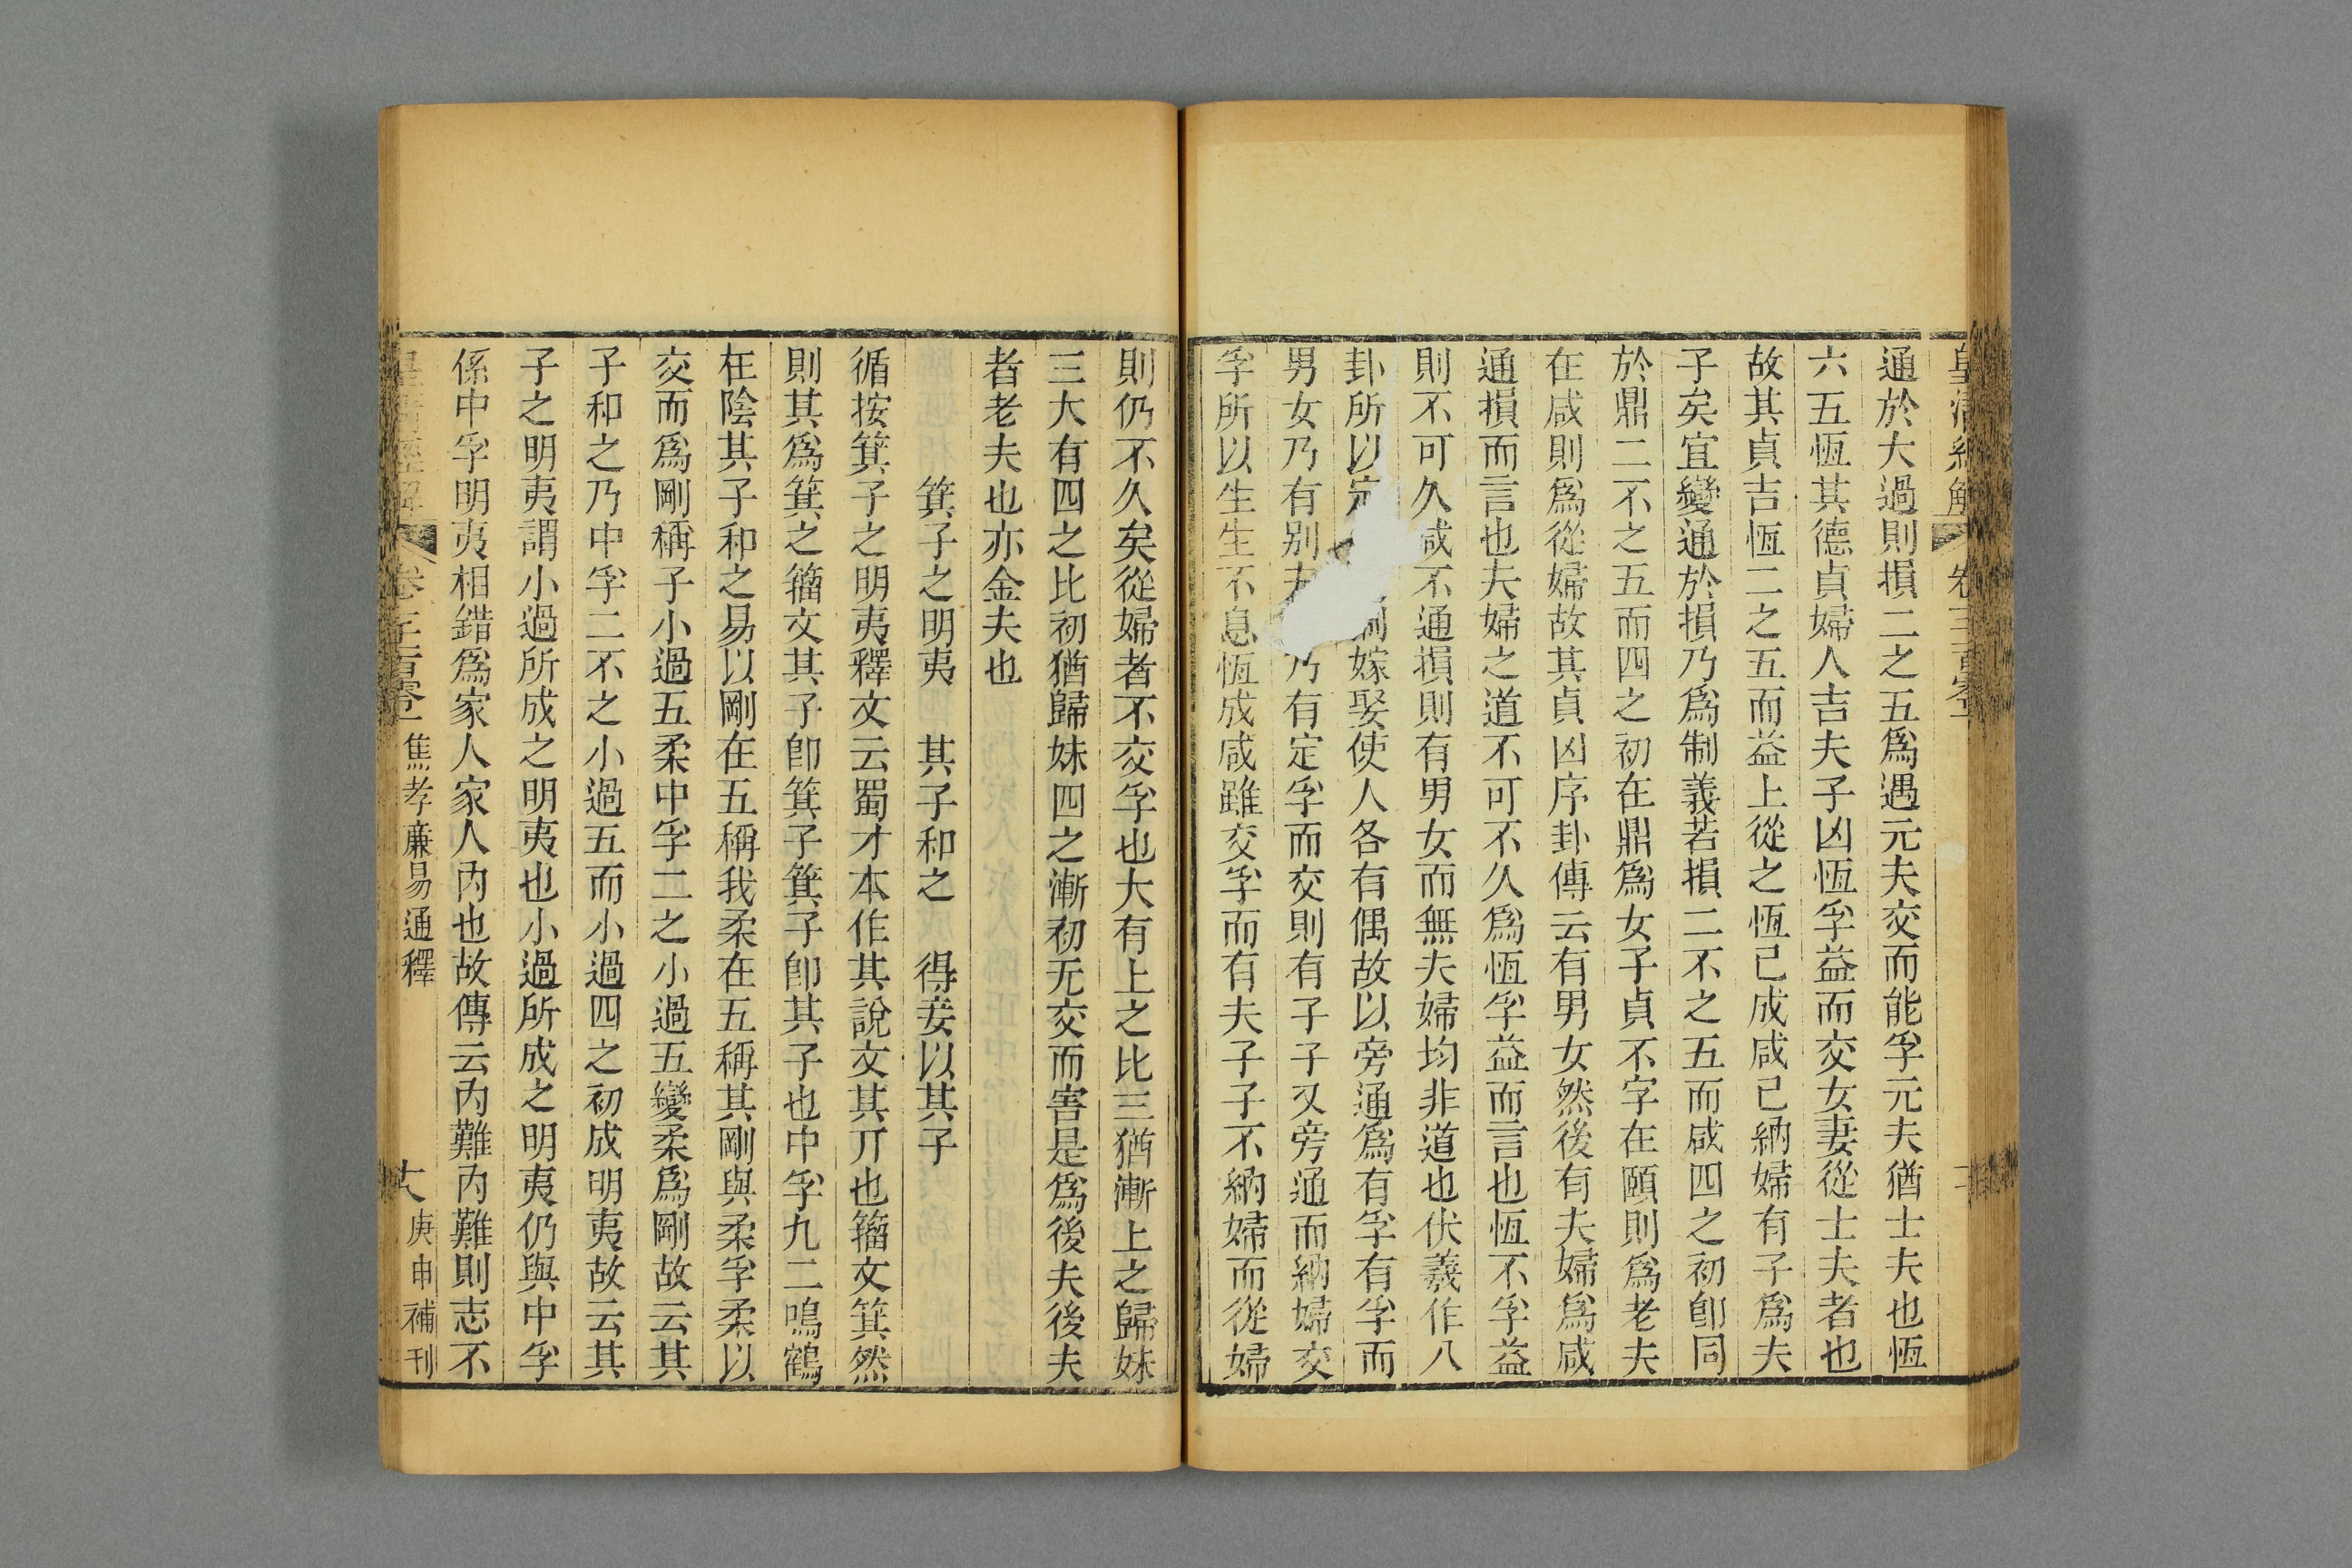 皇清經解 卷一千一百零一
通於大過則損二之五爲遇元夫交而能孚元夫猶士夫也恆
六五恆其德貞婦人吉夫子凶恆孚益而交女妻從士夫者也
故其貞吉恆二之五而益上從之恆已成咸已納婦有子爲夫
子矣宜變通於損乃爲制義若損二不之五而咸四之初卽同
於鼎二不之五而四之初在鼎爲女子貞不字在頤則爲老夫
在咸則爲從婦故其貞凶序卦傳云有男女然後有夫婦爲咸
通損而言也夫婦之道不可不久爲恆孚益而言也恆不孚益
則不可久咸不通損則有男女而無夫婦均非道也伏羲作八
卦所以定 嫁娶使人各有偶故以旁通爲有孚有孚而
男女乃有別 乃有定孚而交則有子子又旁通而納婦交
孚所以生生不息恆成咸雖交孚而有夫子子不納婦而從婦
則仍不久矣從婦者不交孚也大有上之比三猶漸上之歸妹
三大有四之比初猶歸妹四之漸初无交而害是爲後夫後夫
者老夫也亦金夫也
箕子之明夷 其子和之 得妾以其子
循按箕子之明夷釋文云蜀才本作其說文其丌也籀文箕然
則其爲箕之籀文其子卽箕子箕子卽其子也中孚九二鳴鶴
在陰其子和之易以剛在五稱我柔在五稱其剛與柔孚柔以
交而爲剛稱子小過五柔中孚二之小過五變柔爲剛故云其
子和之乃中孚二不之小過五而小過四之初成明夷故云其
子之明夷謂小過所成之明夷也小過所成之明夷仍與中孚
係中孚明夷相錯爲家人家人內也故傳云內難內難則志不
皇清經解 卷一千一百零一 焦孝廉易通釋 十八 庚申補刊